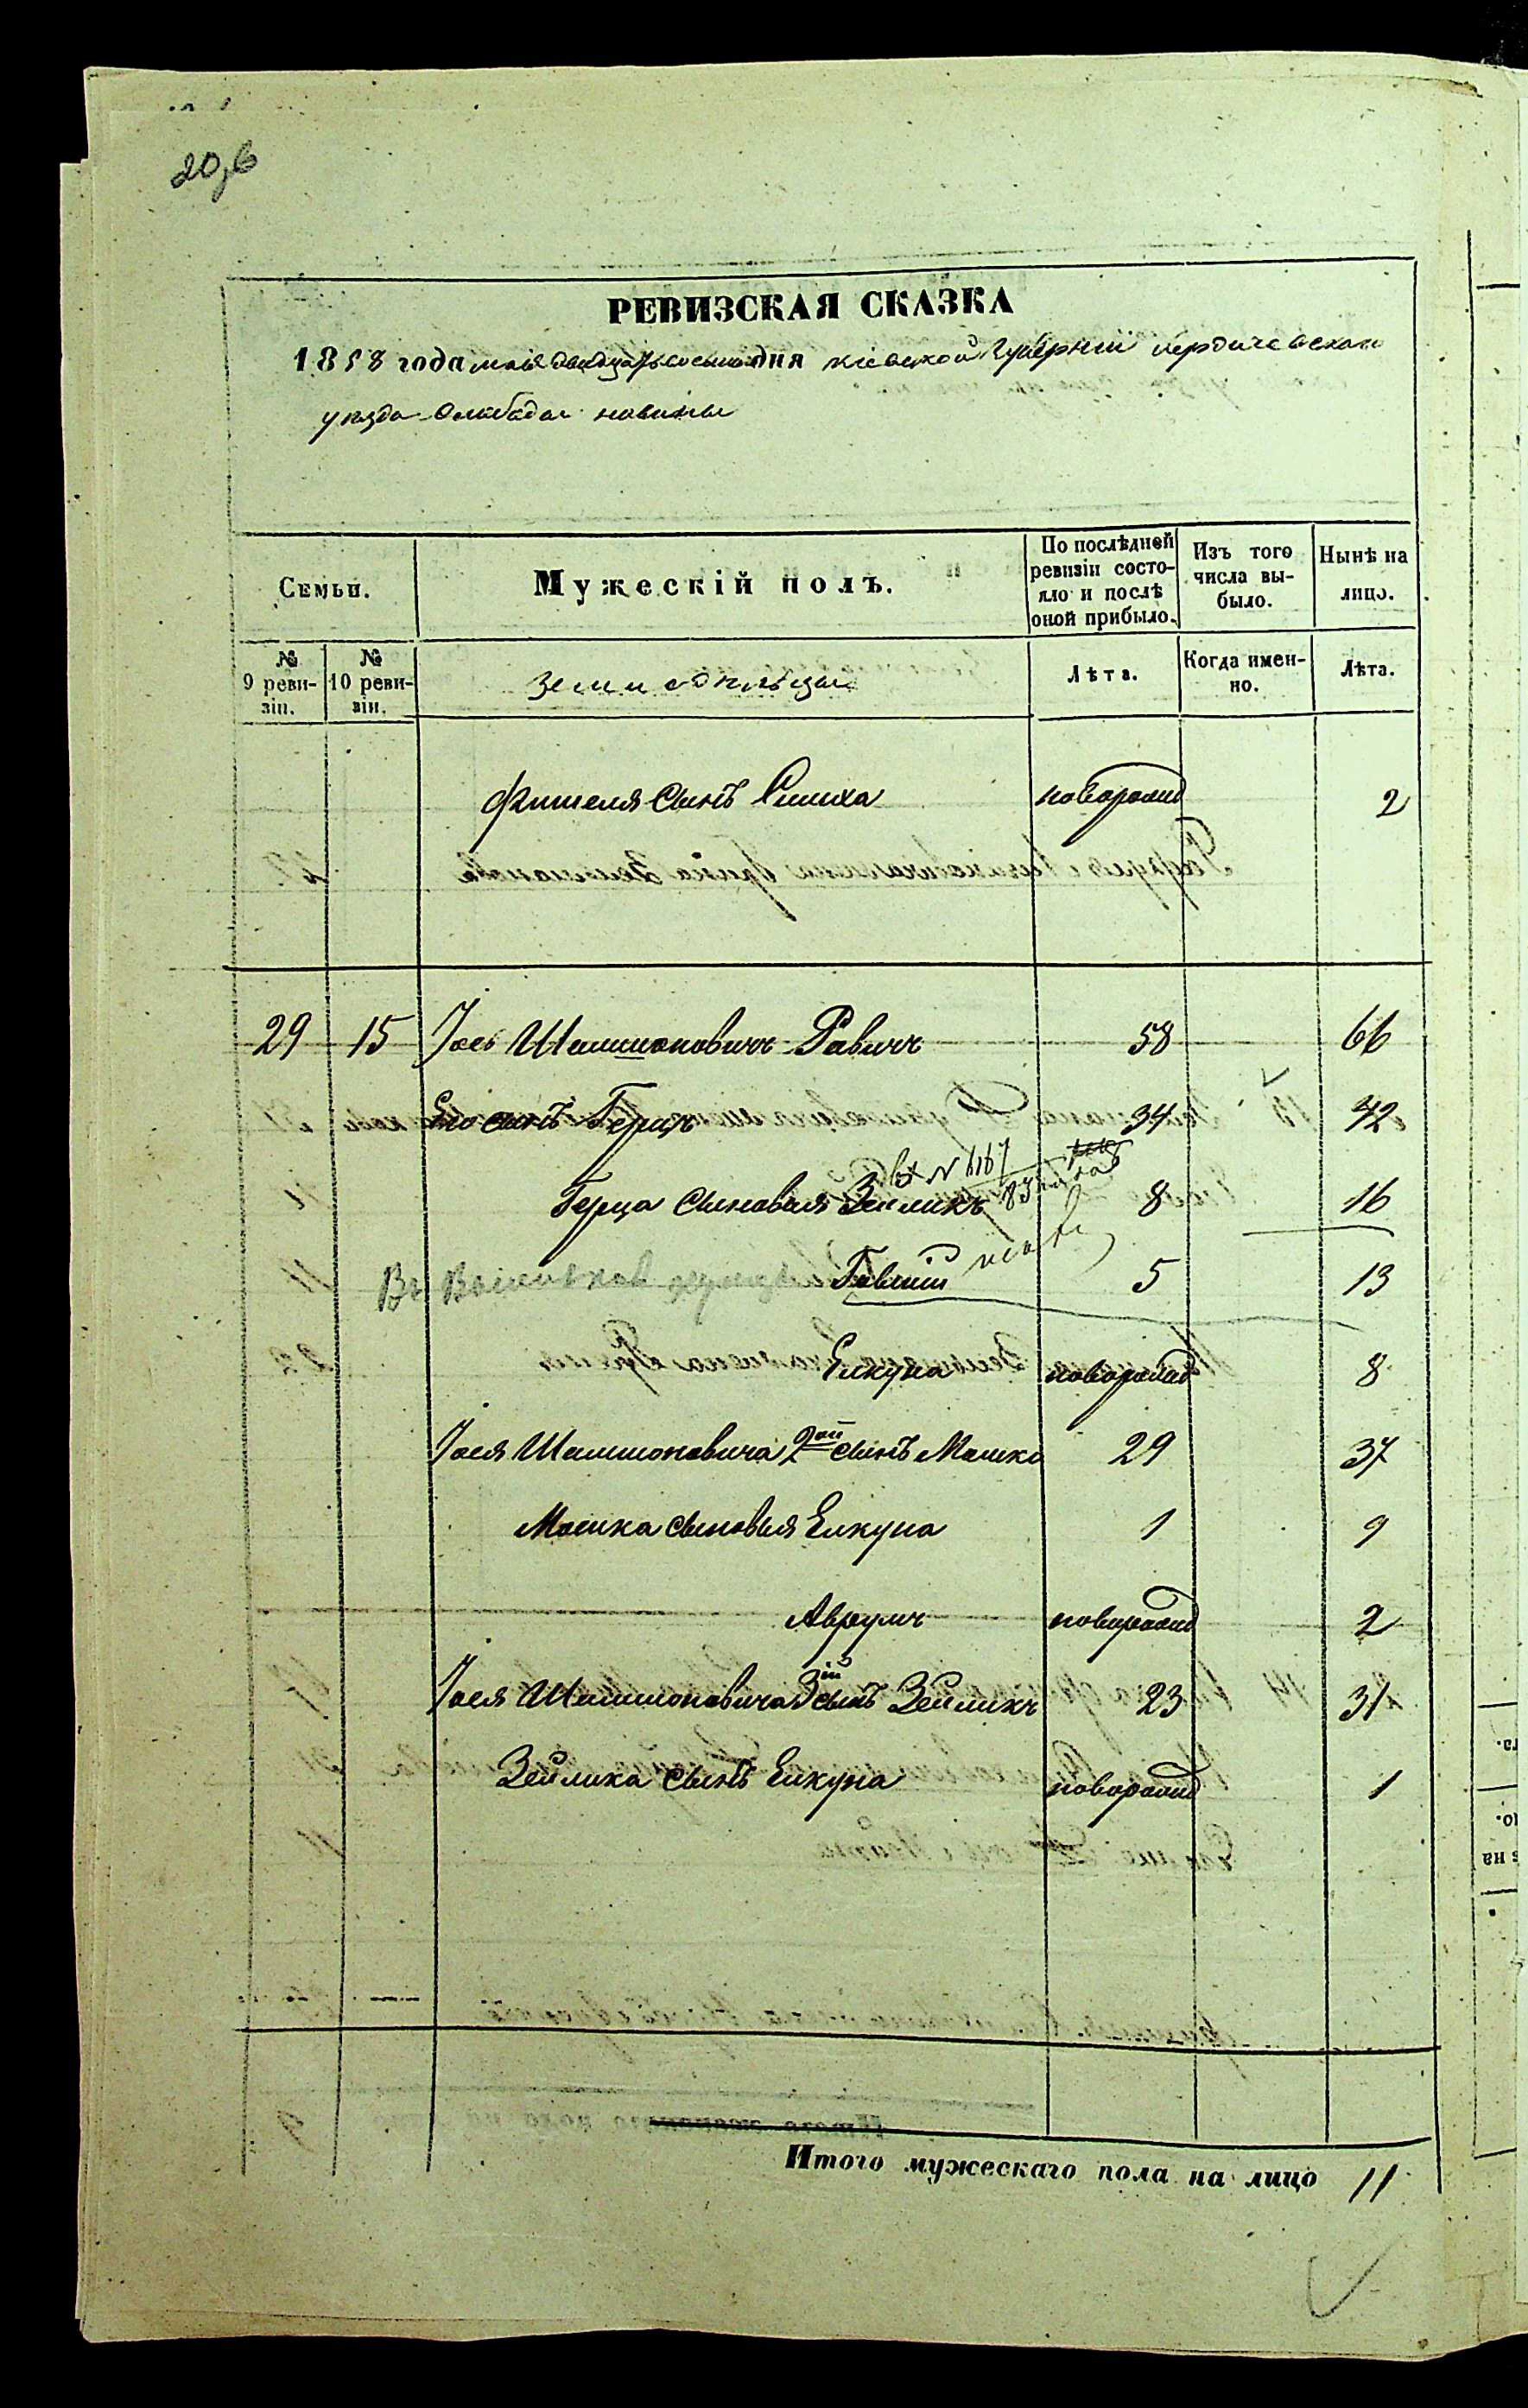 20,6
РЕВИЗСКАЯ СКАЗКА
1858 года мая двадцать восьмого дня Кіевской Губерніи Бердичевскаго
уѣзда Слободы Новины
Семьи.
Мужескій полъ.
По послѣдней ревизіи состояло и послѣ оной прибыло.
Изъ того числа выбыло.
Нынѣ на лицо.
№ 9 ревизіи.
№ 10 ревизіи.
Земледѣльцы
Лѣта.
Когда именно.
Лѣта.
Фишеля сынъ Симха новорожд 2
29 15 Іось Шлимоновичъ Равичъ 58 66
Его сынъ Герцъ 34 42
вх № 6167
Герца сыновья Зейликъ 8 16
Въ 5 13
Елкуна новорожд 8
Іося Шлимоновича 2ой сынъ Мошко 29 37
Мошка сыновья Елкуна 1 9
Аврумъ новорожд 2
Іося Шлимоновича 3ій сынъ Зейликъ 23 31
Зейлика сынъ Елкуна новорожд 1
Итого мужескаго пола на лицо 11